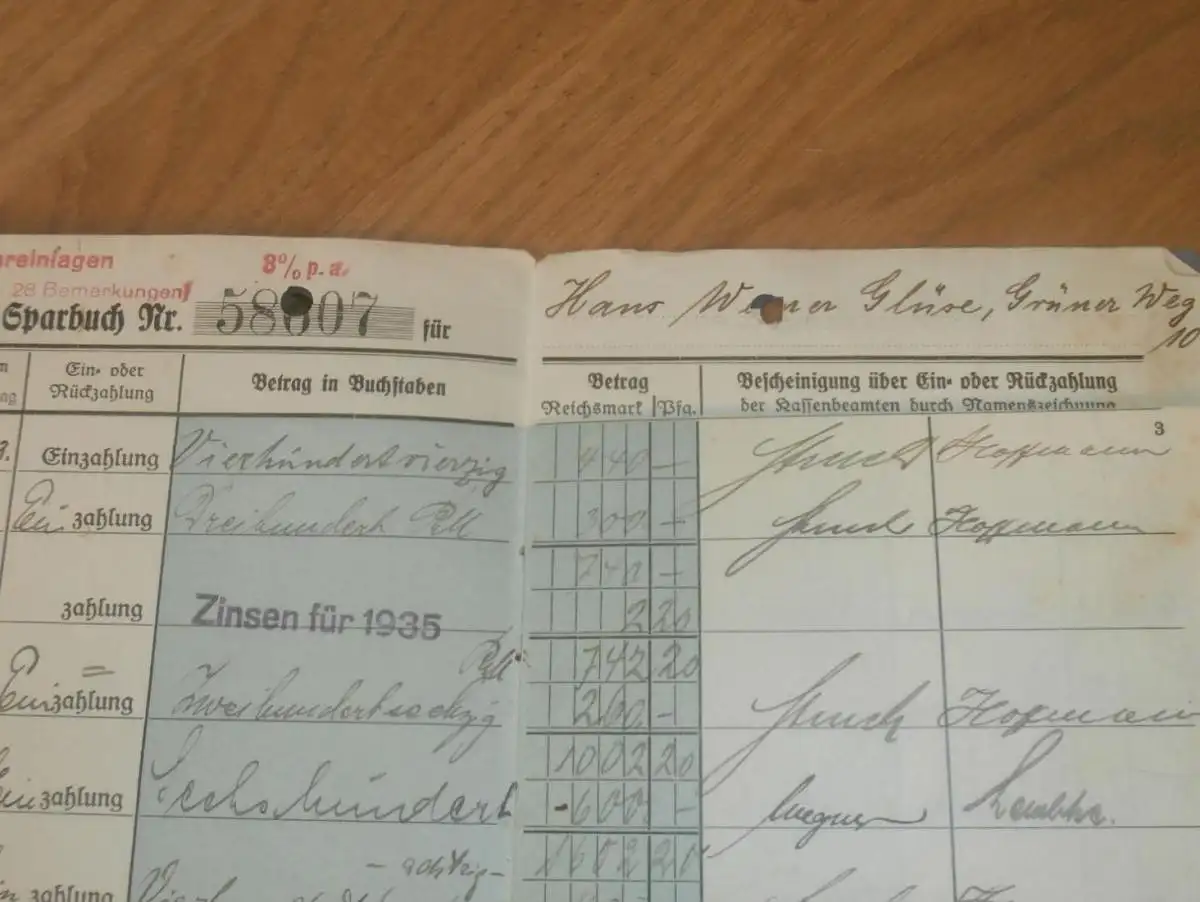 reinlagen 8% p. a.
28 Bemerkungen
Sparbuch Nr. 58 07 für Hans Werner Glüse, Grüner Weg
10
Ein- oder Rückzahlung Betrag in Buchstaben Betrag Bescheinigung über Ein- oder Rückzahlung
Reichsmark Pfg. der Kassenbeamten durch Namenszeichnung
3
Einzahlung Vierhundertvierzig 440 – Hoffmann
Einzahlung Dreihundert RM 300 – Hoffmann
740 –
zahlung Zinsen für 1935 2 20
RM 742 20
Einzahlung Zweihundertsechzig 260 – Hoffmann
1002 20
Einzahlung Sechshundert - 600 –
1602 20
– achtzig –
zahlung Vier